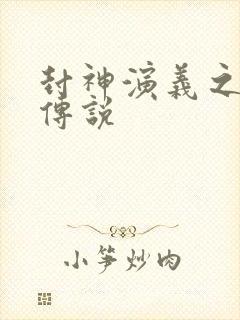 封神演義之
傳說
小笋炒肉